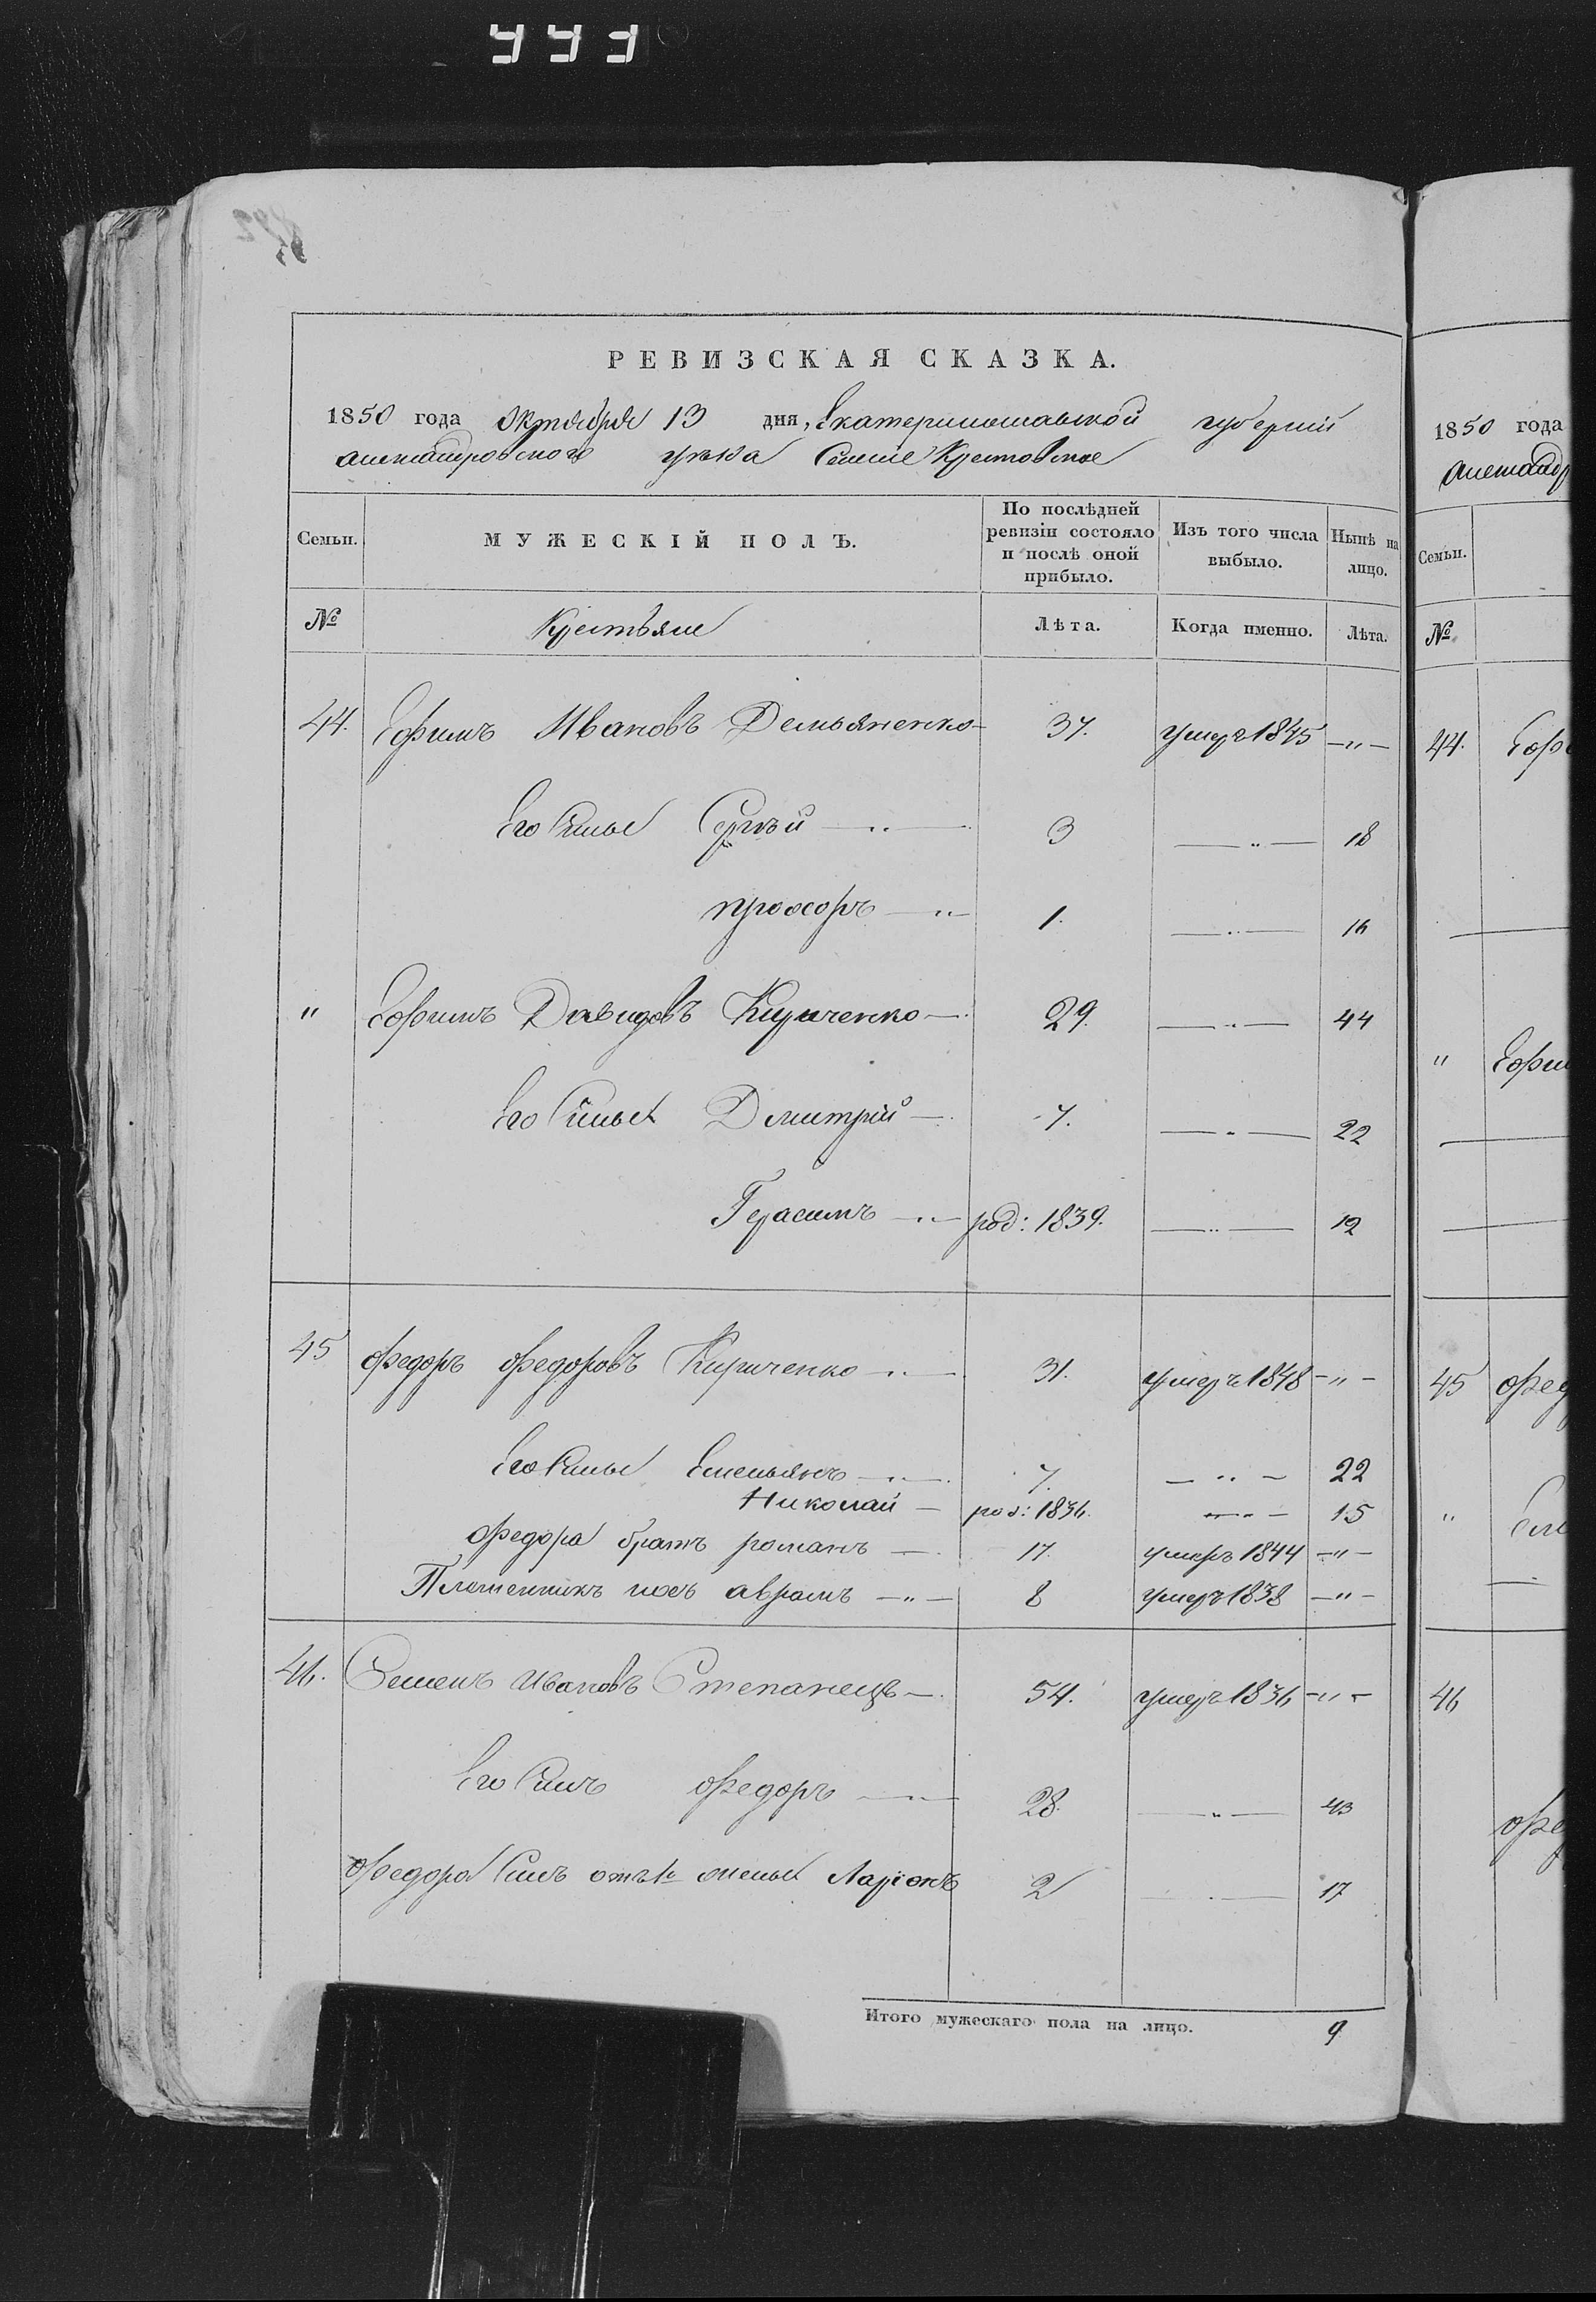 РЕВИЗСКАЯ СКАЗКА.
1850 года Октября 13 дня, Екатеринославской губернiи
александровского уѣзда Селенiе Крестовское
Семьи. МУЖЕСКІЙ ПОЛЪ. По послѣдней ревизіи состояло и послѣ оной прибыло. Изъ того числа выбыло. Нынѣ на лицо.
№ Крестьяне Лѣта. Когда именно. Лѣта.
44. Ефимъ Ивановъ Демьяненко 37. умеръ 1845 —"—
Его Сыны Сергѣй —"— 3 —"— 18
прохоръ —"— 1. —"— 16
" Ефимъ Давидовъ Кириченко — 29. —"— 44
Его Сыны Дмитрiй — 7. —"— 22
Герасимъ —"— род: 1839. —"— 12
45 Федоръ Федоровъ Кириченко —"— 31. умеръ 1848 —"—
Его Сыны Емельянъ —"— 7. —"— 22
Николай — род: 1836. —"— 15
Федора братъ романъ — 17. умеръ 1844 —"—
Племенникъ ихъ аврамъ —"— 8 умеръ 1838 —"—
46. Семенъ Ивановъ Степанецъ — 54. умеръ 1836 —"—
Его Сынъ Федоръ —"— 28. —"— 43
Федора Сынъ отъ 1й жены Ларiонъ 2 —"— 17
Итого мужескаго пола на лицо. 9
1850 года
александр
Семьи.
№
44. Ефи
" Ефим
45 Фед
"
46
Фед